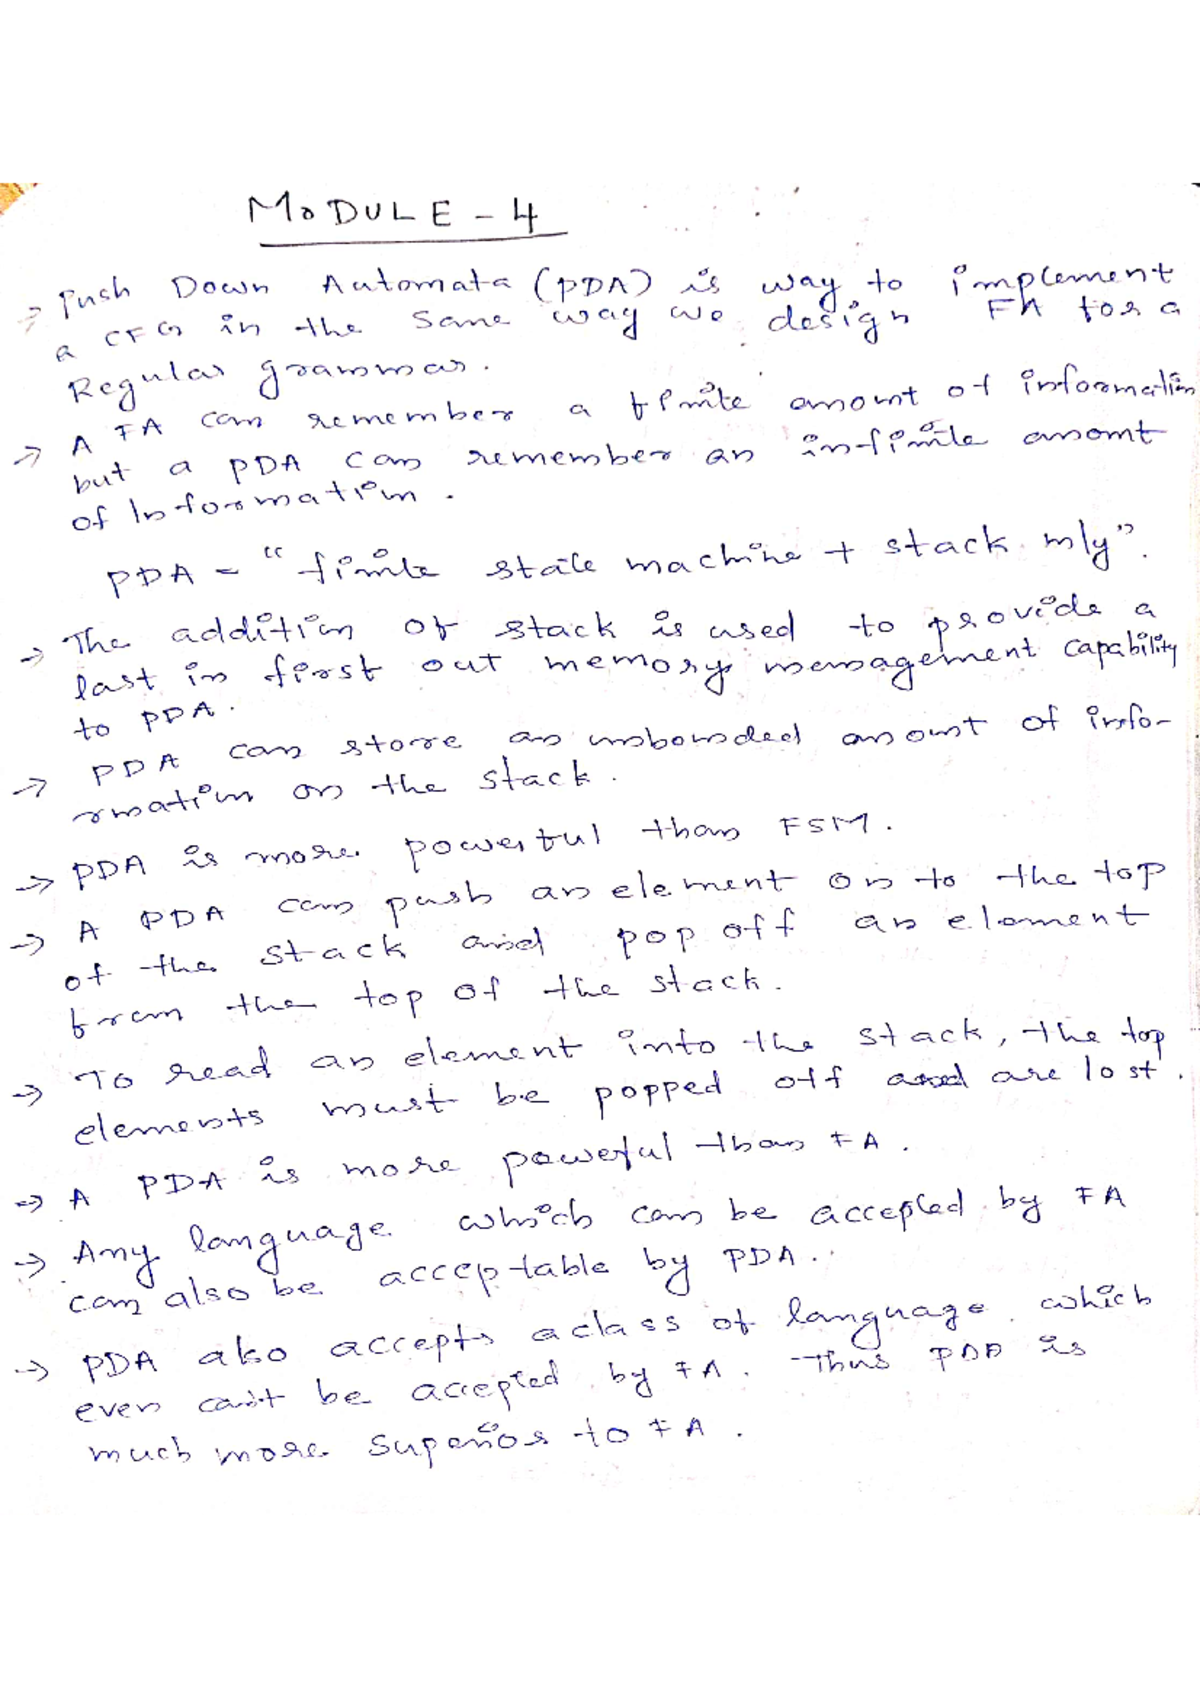 MODULE - 4
→ Push Down Automata (PDA) is way to implement
a CFG in the same way we design FA for a
Regular grammar.
→ A FA can remember a finite amount of information
but a PDA can remember an infinite amount
of Information.
PDA = "finite state machine + stack only".
→ The addition of stack is used to provide a
last in first out memory management capability
to PDA.
→ PDA can store an unbounded amount of info-
rmation on the stack.
→ PDA is more powerful than FSM.
→ A PDA can push an element on to the top
of the stack and pop off an element
from the top of the stack.
→ To read an element into the stack, the top
elements must be popped off and are lost.
→ A PDA is more poweful than FA.
→ Any language which can be accepted by FA
can also be acceptable by PDA.
→ PDA also accepts a class of language which
even can't be accepted by FA. Thus PDA is
much more superior to FA.